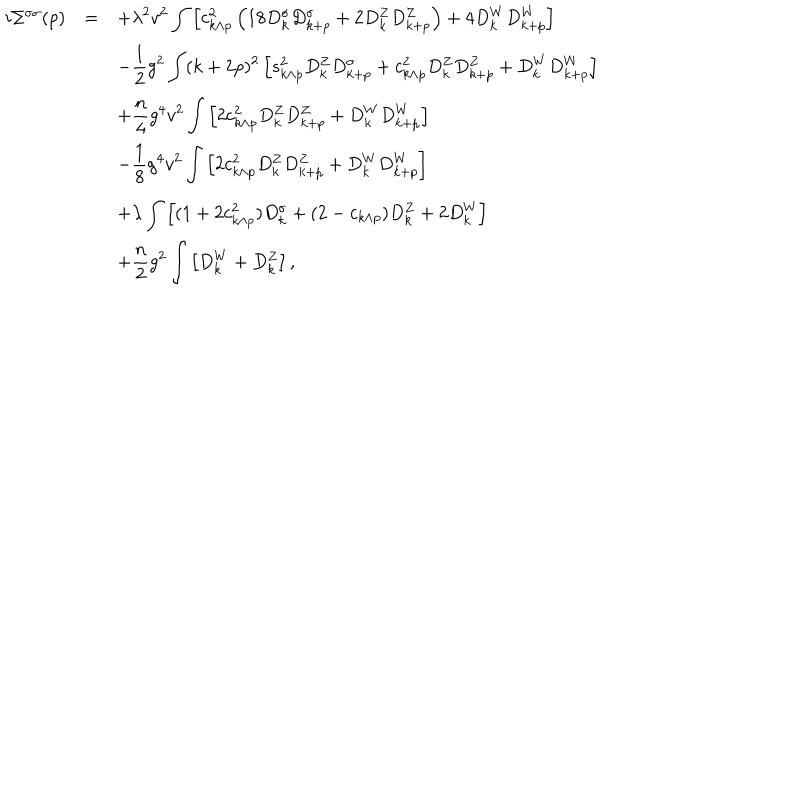 iΣ^{σσ}(p) = +λ²v² ∫ [c²_{k∧p} (18D^σ_k D^σ_{k+p} + 2D^Z_k D^Z_{k+p}) + 4D^W_k D^W_{k+p}]
−\frac{1}{2}g² ∫(k + 2p)² [s²_{k∧p} D^Z_k D^σ_{k+p} + c²_{k∧p} D^Z_k D^Z_{k+p} + D^W_k D^W_{k+p}]
+\frac{n}{4}g⁴v² ∫ [2c²_{k∧p} D^Z_k D^Z_{k+p} + D^W_k D^W_{k+p}]
−\frac{1}{8}g⁴v² ∫ [2c²_{k∧p} D^Z_k D^Z_{k+p} + D^W_k D^W_{k+p}]
+λ ∫ [(1 + 2c²_{k∧p})D^σ_k + (2 − c_{k∧p})D^Z_k + 2D^W_k]
+\frac{n}{2}g² ∫ [D^W_k + D^Z_k] ,